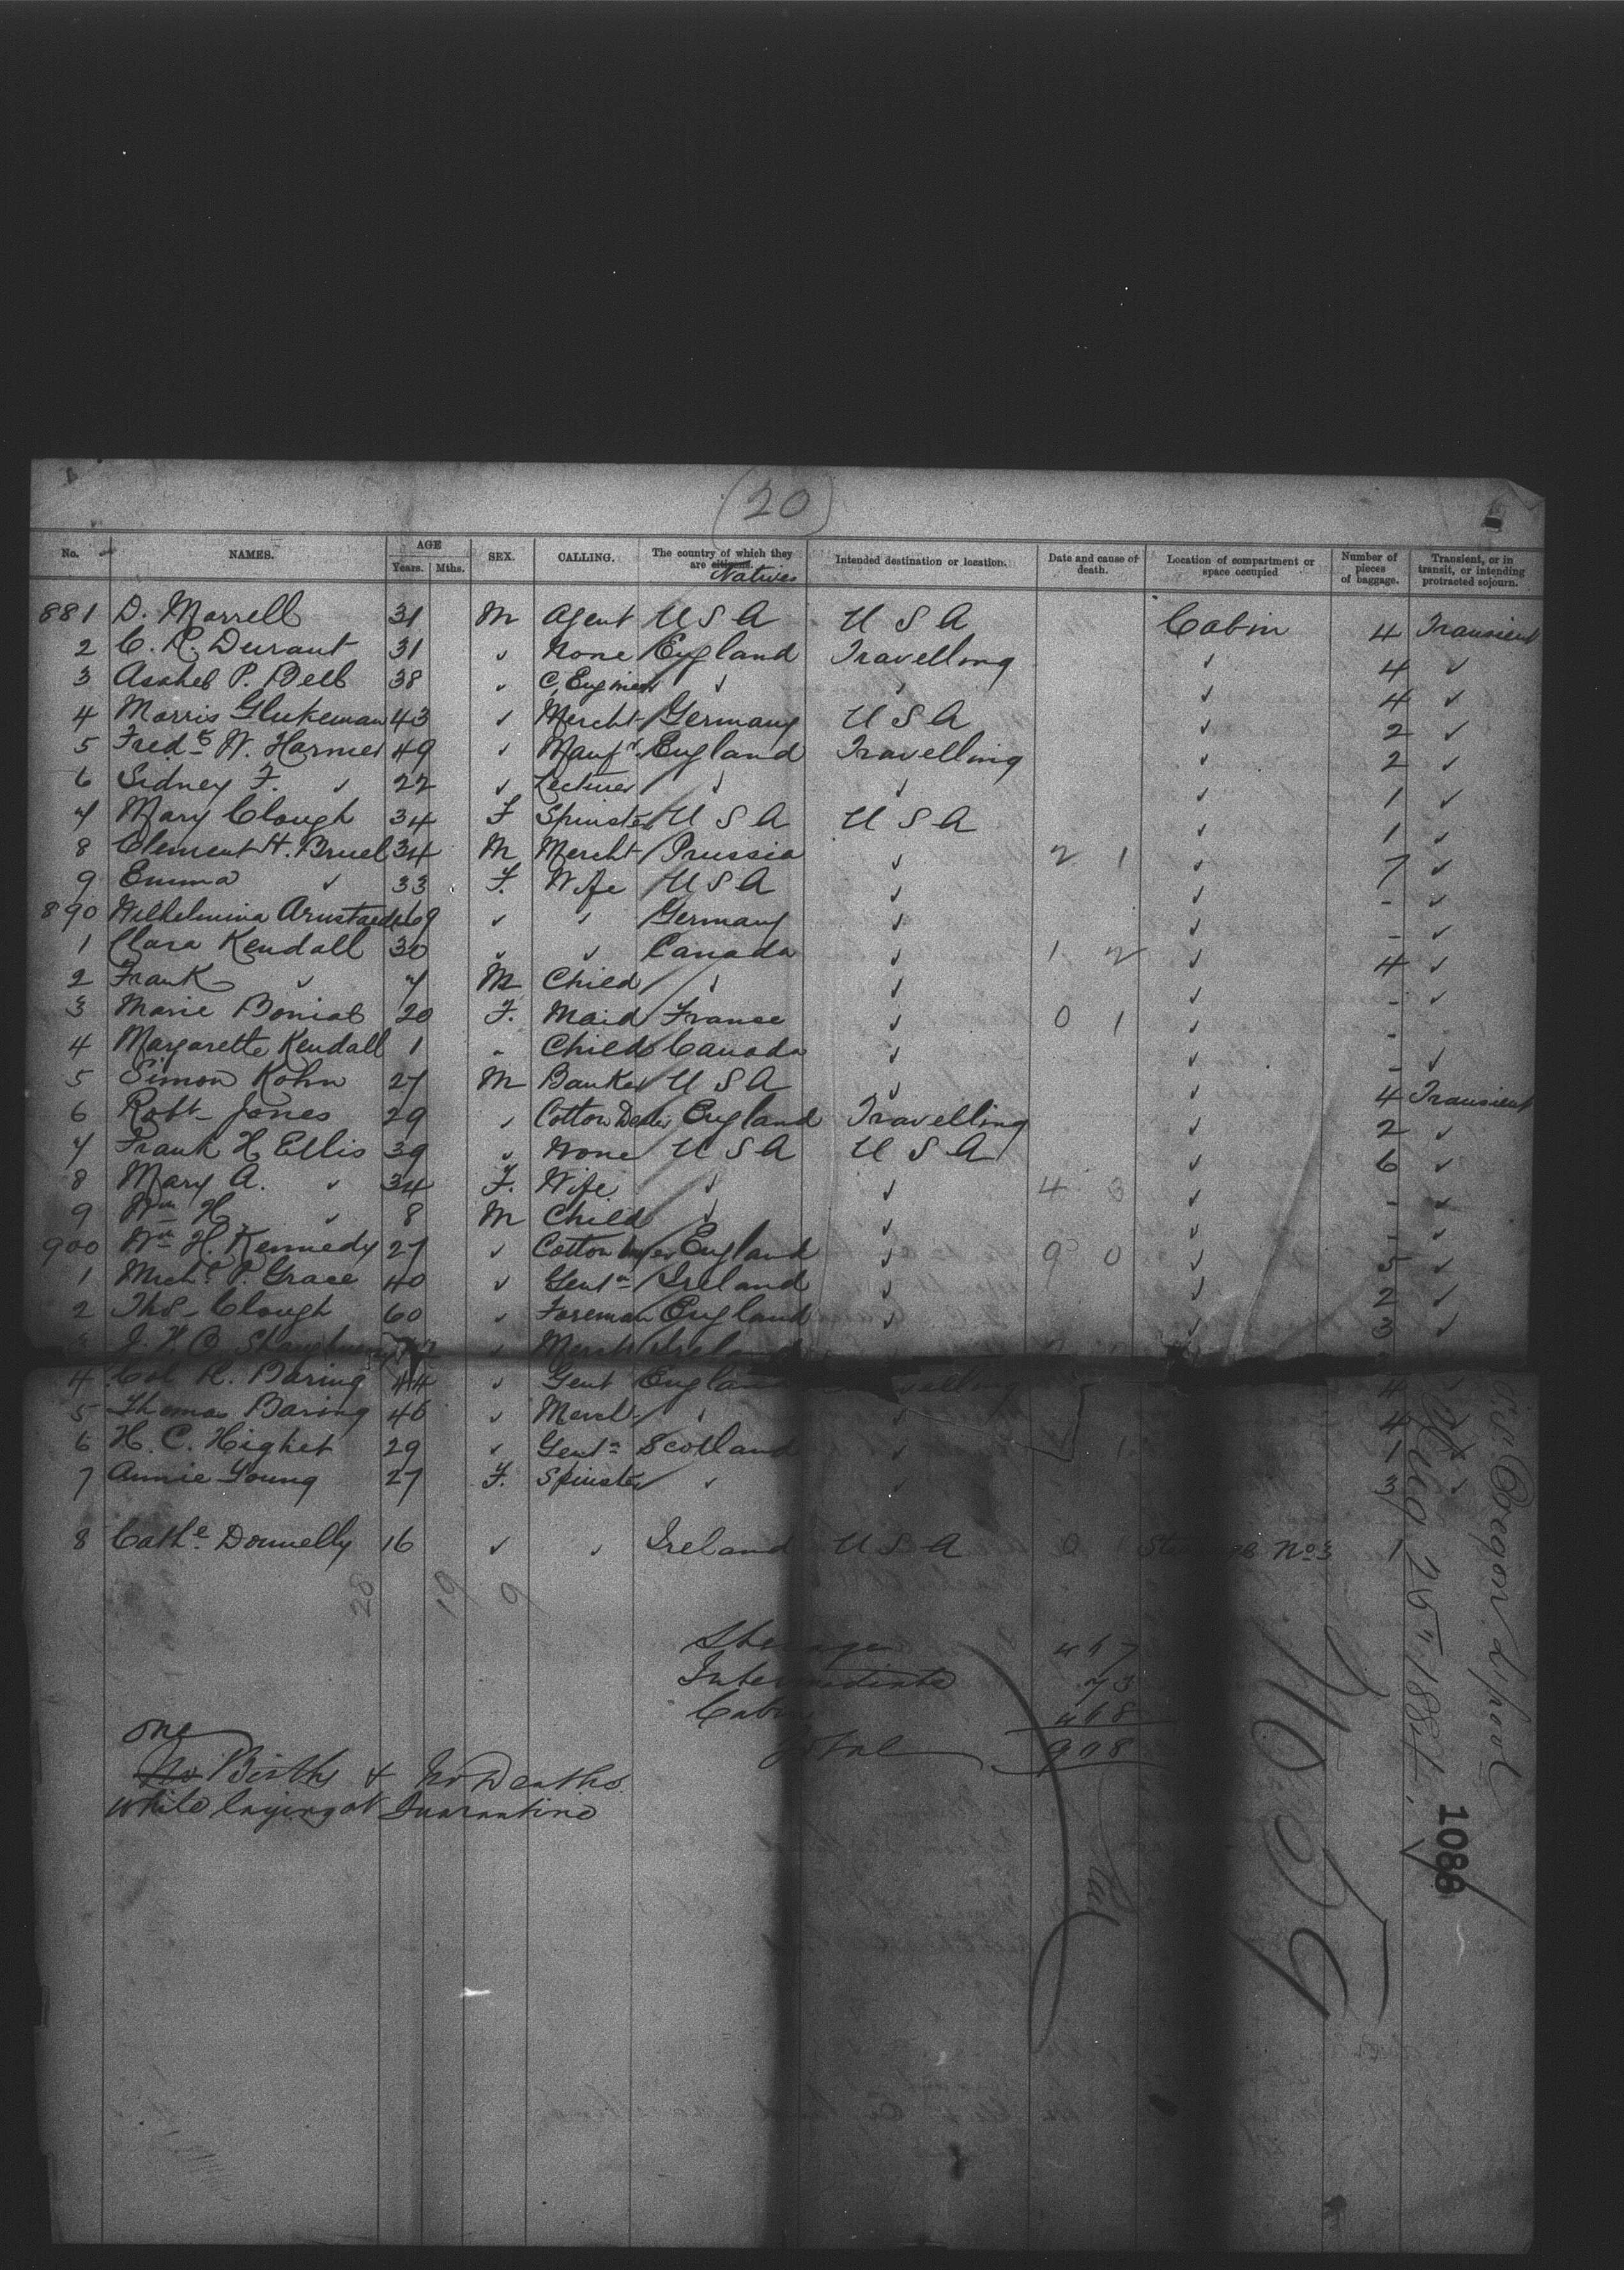 (20)
No. NAMES. AGE SEX. CALLING. The country of which they are citizens. Intended destination or location. Date and cause of death. Location of compartment or space occupied Number of pieces of baggage. Transient, or in transit, or intending protracted sojourn.
Years. Mths. Natives
881 D. Morrell 31 M Agent U S A U S A Cabin 4 Transient
2 C. R. Durant 31 ✓ None England Travelling ✓ 4 ✓
3 Asahel P. Bell 38 ✓ C. Engineer ✓ ✓ ✓ 4 ✓
4 Morris Glukeman 43 ✓ Mercht Germany U S A ✓ 2 ✓
5 Fredk W. Harmer 49 ✓ Manufr England Travelling ✓ 2 ✓
6 Sidney F. ✓ 22 ✓ Lecturer ✓ ✓ ✓ 1 ✓
7 Mary Clough 34 F Spinster U S A U S A ✓ 1 ✓
8 Clement H. Bruel 34 M Mercht Prussia ✓ 2 1 ✓ 7 ✓
9 Emma ✓ 33 F. Wife U S A ✓ ✓ - ✓
890 Wilhelmina 69 ✓ ✓ Germany ✓ ✓ - ✓
1 Clara Kendall 30 ✓ ✓ Canada ✓ 1 2 ✓ 4 ✓
2 Frank ✓ 7 M Child ✓ ✓ ✓ - ✓
3 Marie 20 F. Maid France ✓ 0 1 ✓ -
4 Margarette Kendall 1 " Child Canada ✓ ✓ - ✓
5 Simon Kohn 27 M Banker U S A ✓ ✓ 4 Transient
6 Robt Jones 29 ✓ Cotton Dealer England Travelling ✓ 2 ✓
7 Frank H Ellis 39 ✓ None U S A U S A ✓ 6 ✓
8 Mary A. ✓ 34 F. Wife ✓ ✓ 4 3 ✓ - ✓
9 Wm H ✓ 8 M Child ✓ ✓ ✓ - ✓
900 Wm H. Kennedy 27 ✓ Cotton buyer England ✓ 9 0 ✓ 5 ✓
1 Michl P. Grace 40 ✓ Gentn Ireland ✓ ✓ 2 ✓
2 Thos Clough 60 ✓ Foreman England ✓ ✓ 3 ✓
✓ Mercht Ireland
4 Col R. Baring 44 ✓ Gent England 4 ✓
5 Thomas Baring 46 ✓ Mercht ✓ ✓ 4 ✓
6 H. C. Highet 29 ✓ Gentn Scotland ✓ 1 ✓
7 Annie Young 27 F. Spinster ✓ ✓ 3 ✓
8 Cathe Donnelly 16 ✓ ✓ Ireland U S A 0 Steerage No 3 1
28 19 9
Steerage 467
Intermediate 73
Cabin
Total 908
one
No Births & No Deaths
while laying at Quarantine
S.S. Oregon Lpool
Aug 25th 1884.
1088